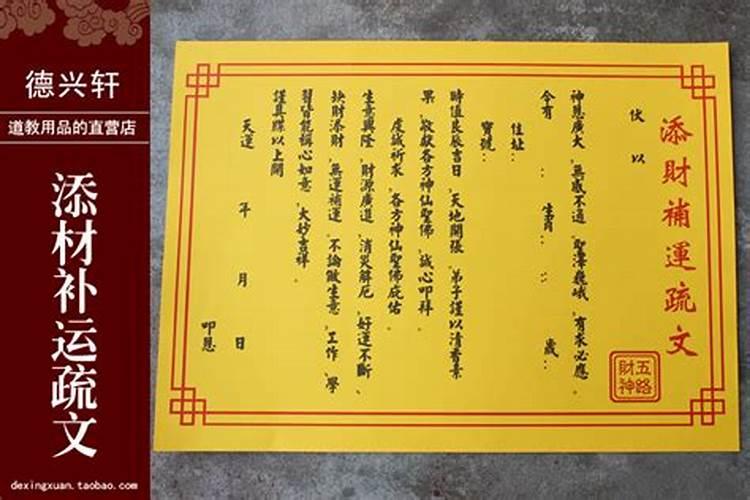 德兴轩
道教用品的直营店
添材补运疏文
dexingxuan.taobao.com
添財補運疏文
五路財神
伏以
神恩廣大、無感不通、聖澤巍峨、有求必應。
今有 : 生肖: : 歲:
住址:
寶號:
時值良辰吉日、天地開張、弟子謹以清香素
果、敬献各方神仙聖佛、誠心叩拜。
虔誠祈求、各方神仙聖佛庇佑。
生意興隆、財源廣進、消災解厄、好運不斷、
缺財添財、無運補運、不論做生意、工作、學
習皆能稱心如意、大妙吉祥。
謹具牒以上聞
天運 年 月 日 叩恩